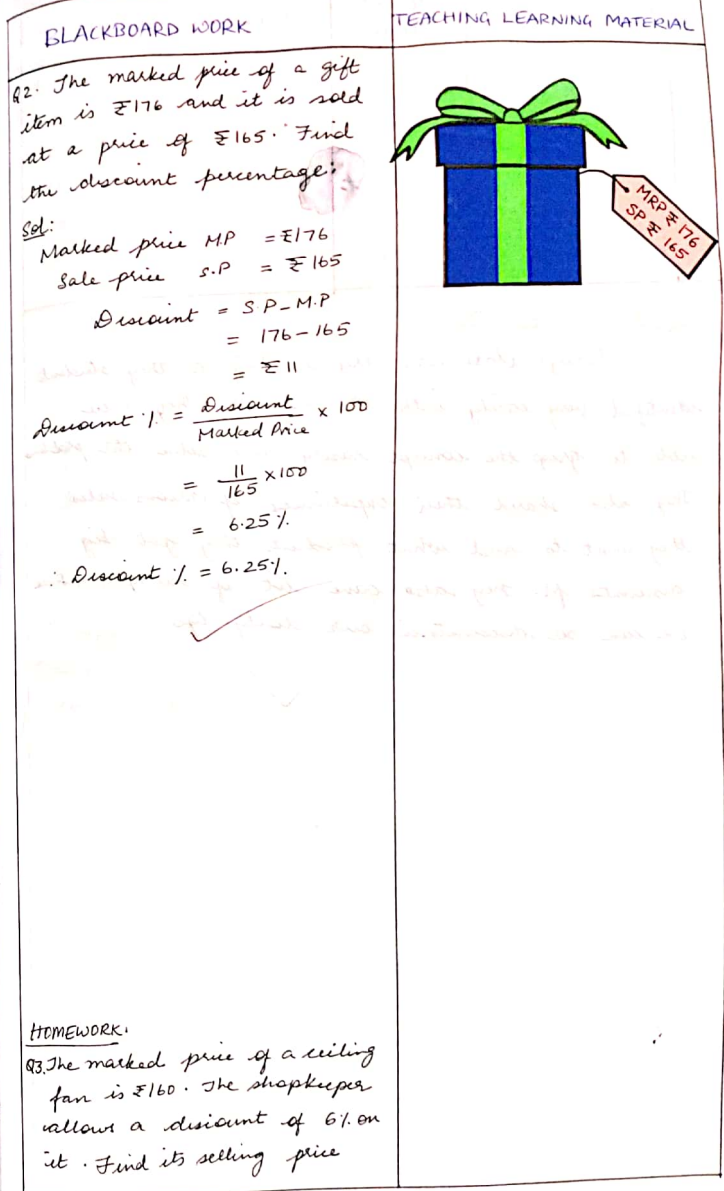 BLACKBOARD WORK
TEACHING LEARNING MATERIAL
Q2. The marked price of a gift
item is ₹176 and it is sold
at a price of ₹165. Find
the discount percentage:
Sol:
Marked price M.P = ₹176
Sale price S.P = ₹165
Discount = S.P - M.P
= 176 - 165
= ₹11
Discount % = Discount / Marked Price × 100
= 11/165 × 100
= 6.25%.
∴ Discount % = 6.25%.
MRP ₹ 176
SP ₹ 165
HOMEWORK.
Q3. The marked price of a ceiling
fan is ₹160. The shopkeeper
allows a discount of 6% on
it. Find its selling price